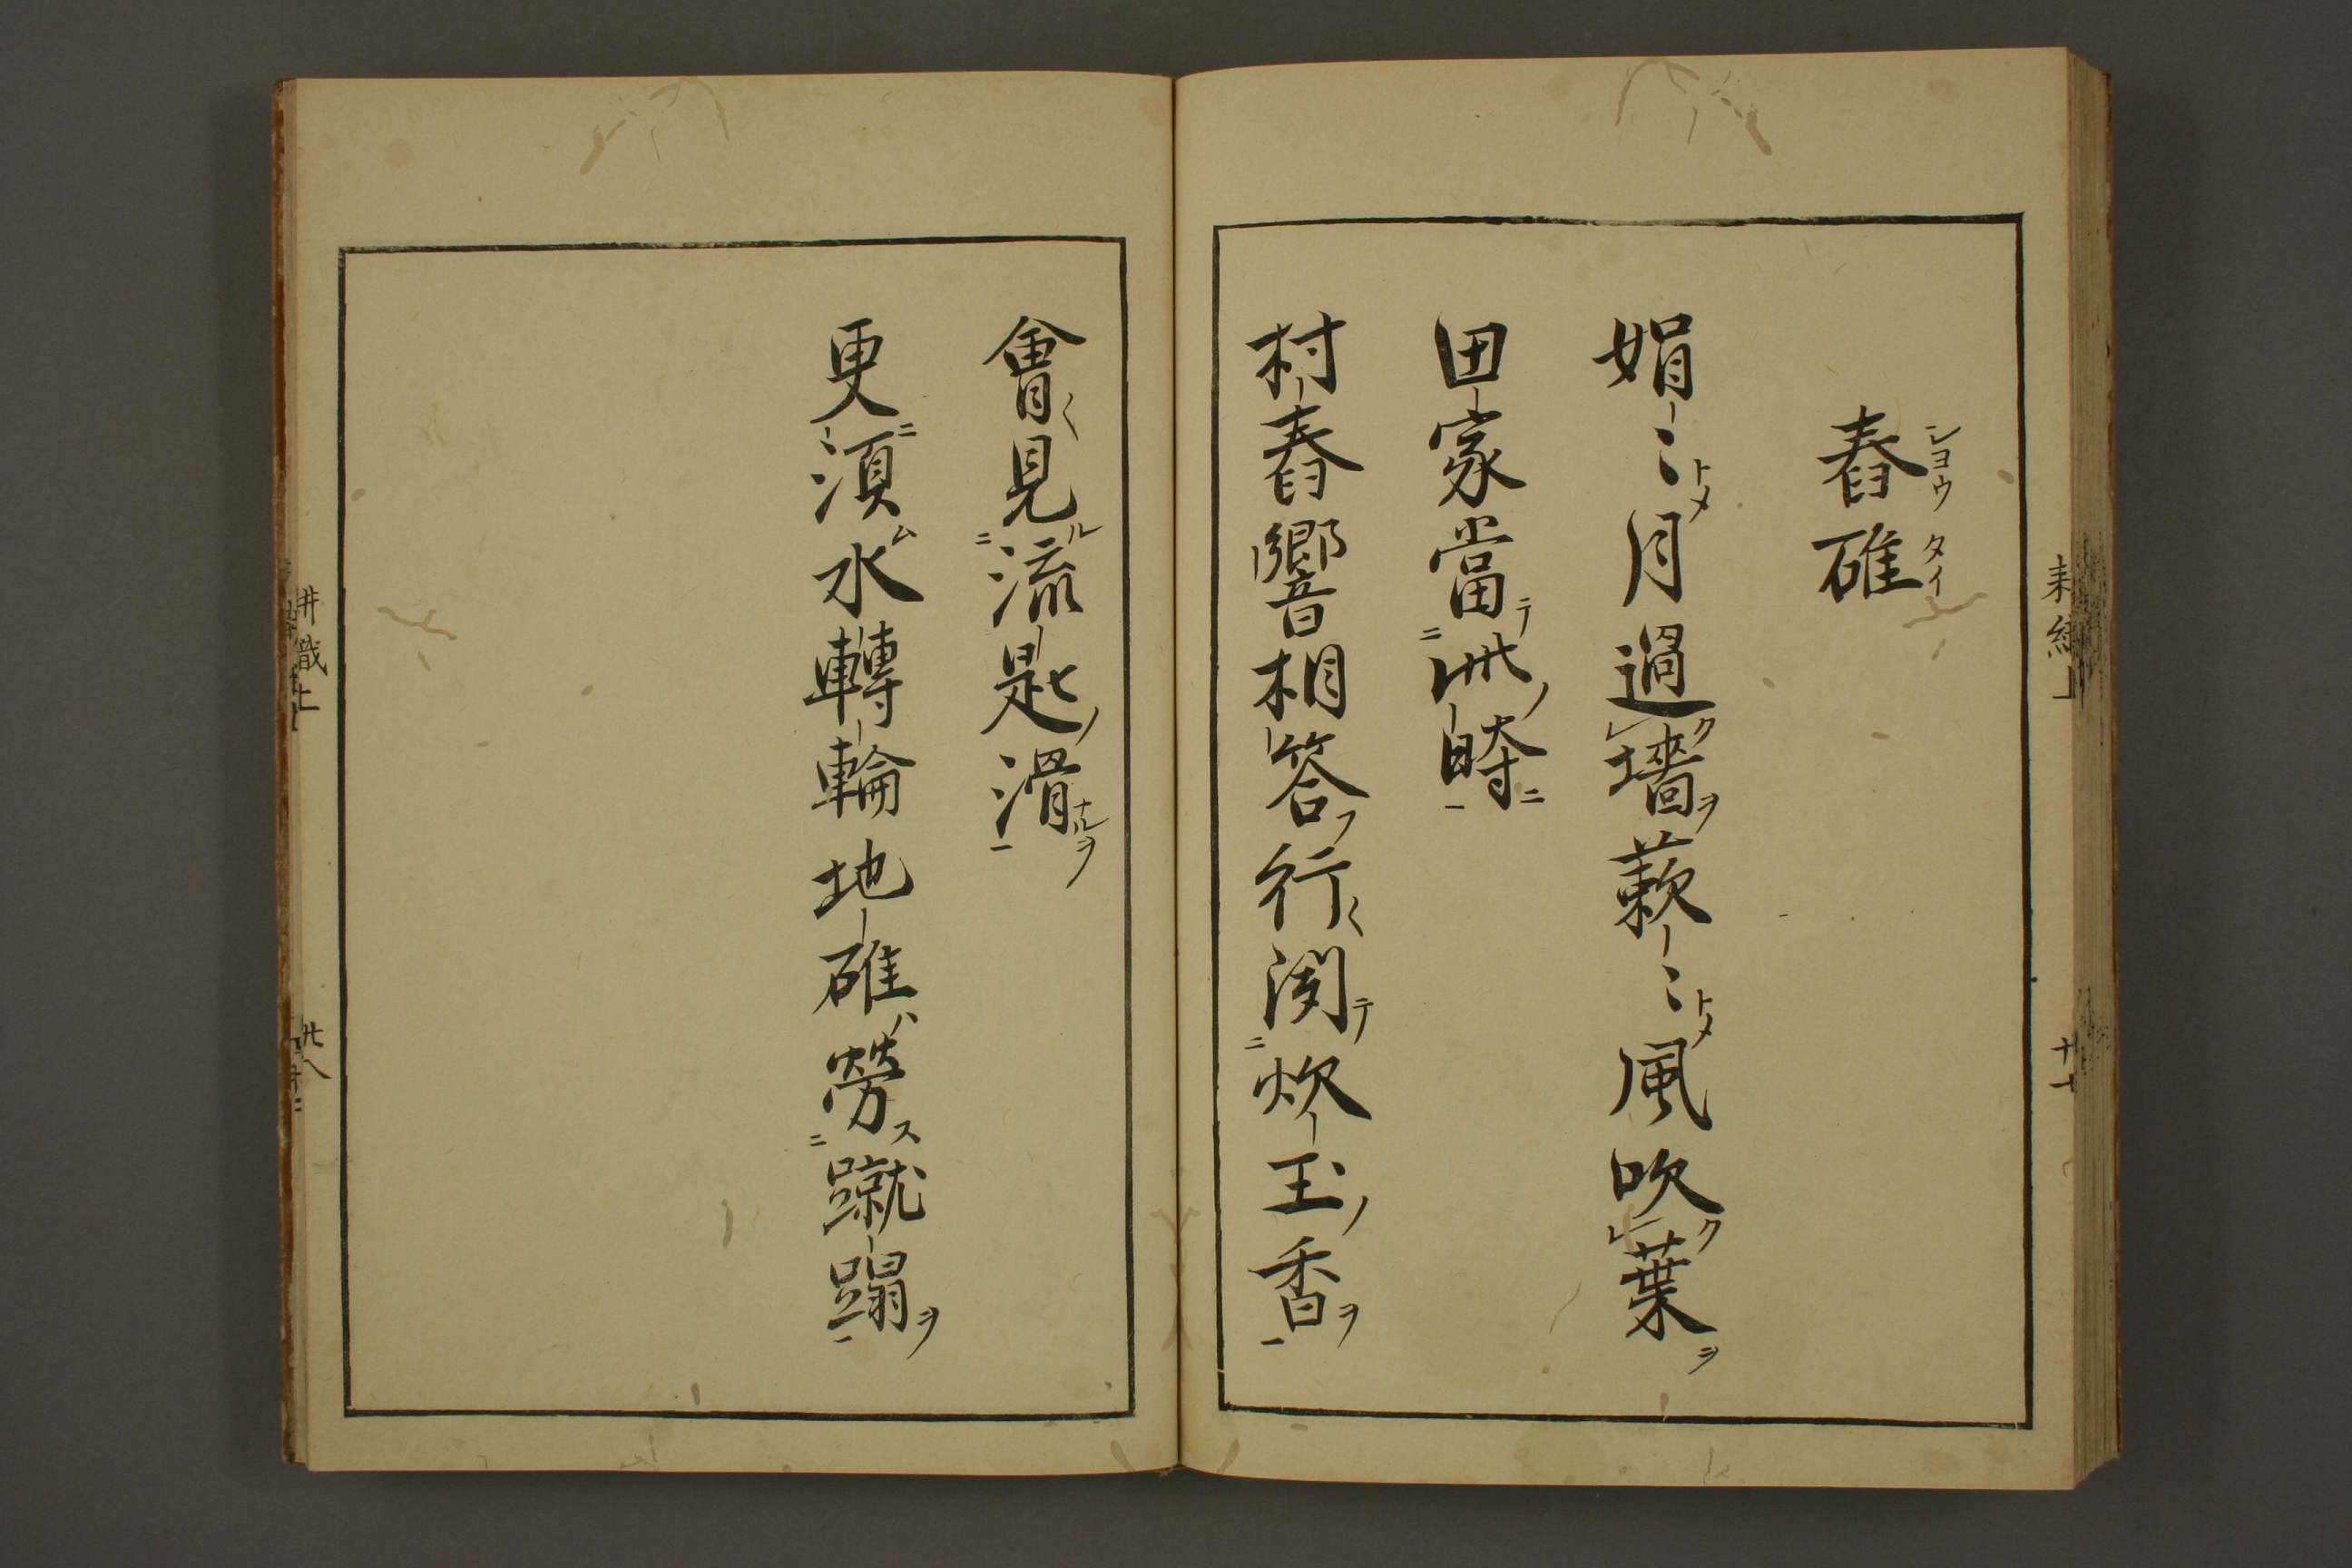 舂碓
シヨウ タイ
娟〻月過墻蔌〻風吹葉
田家當此時
村舂響相答行聞炊玉香
會見流匙滑
更須水轉輪地碓勞蹴蹋
耕織上